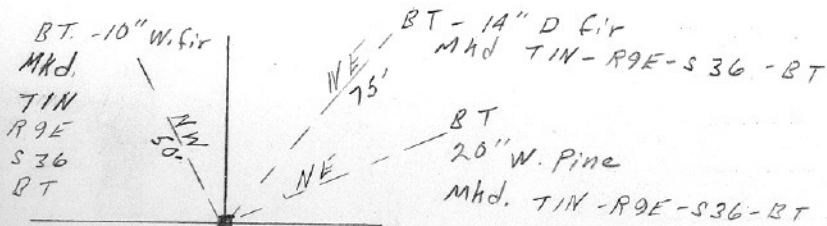 BT. -10" W. fir
Mkd.
T1N
R9E
S36
BT
NW
50'
BT - 14" D fir
Mkd T1N - R9E - S36 - BT
NE
75'
BT
20" W. Pine
Mkd. T1N - R9E - S36 - BT
NE